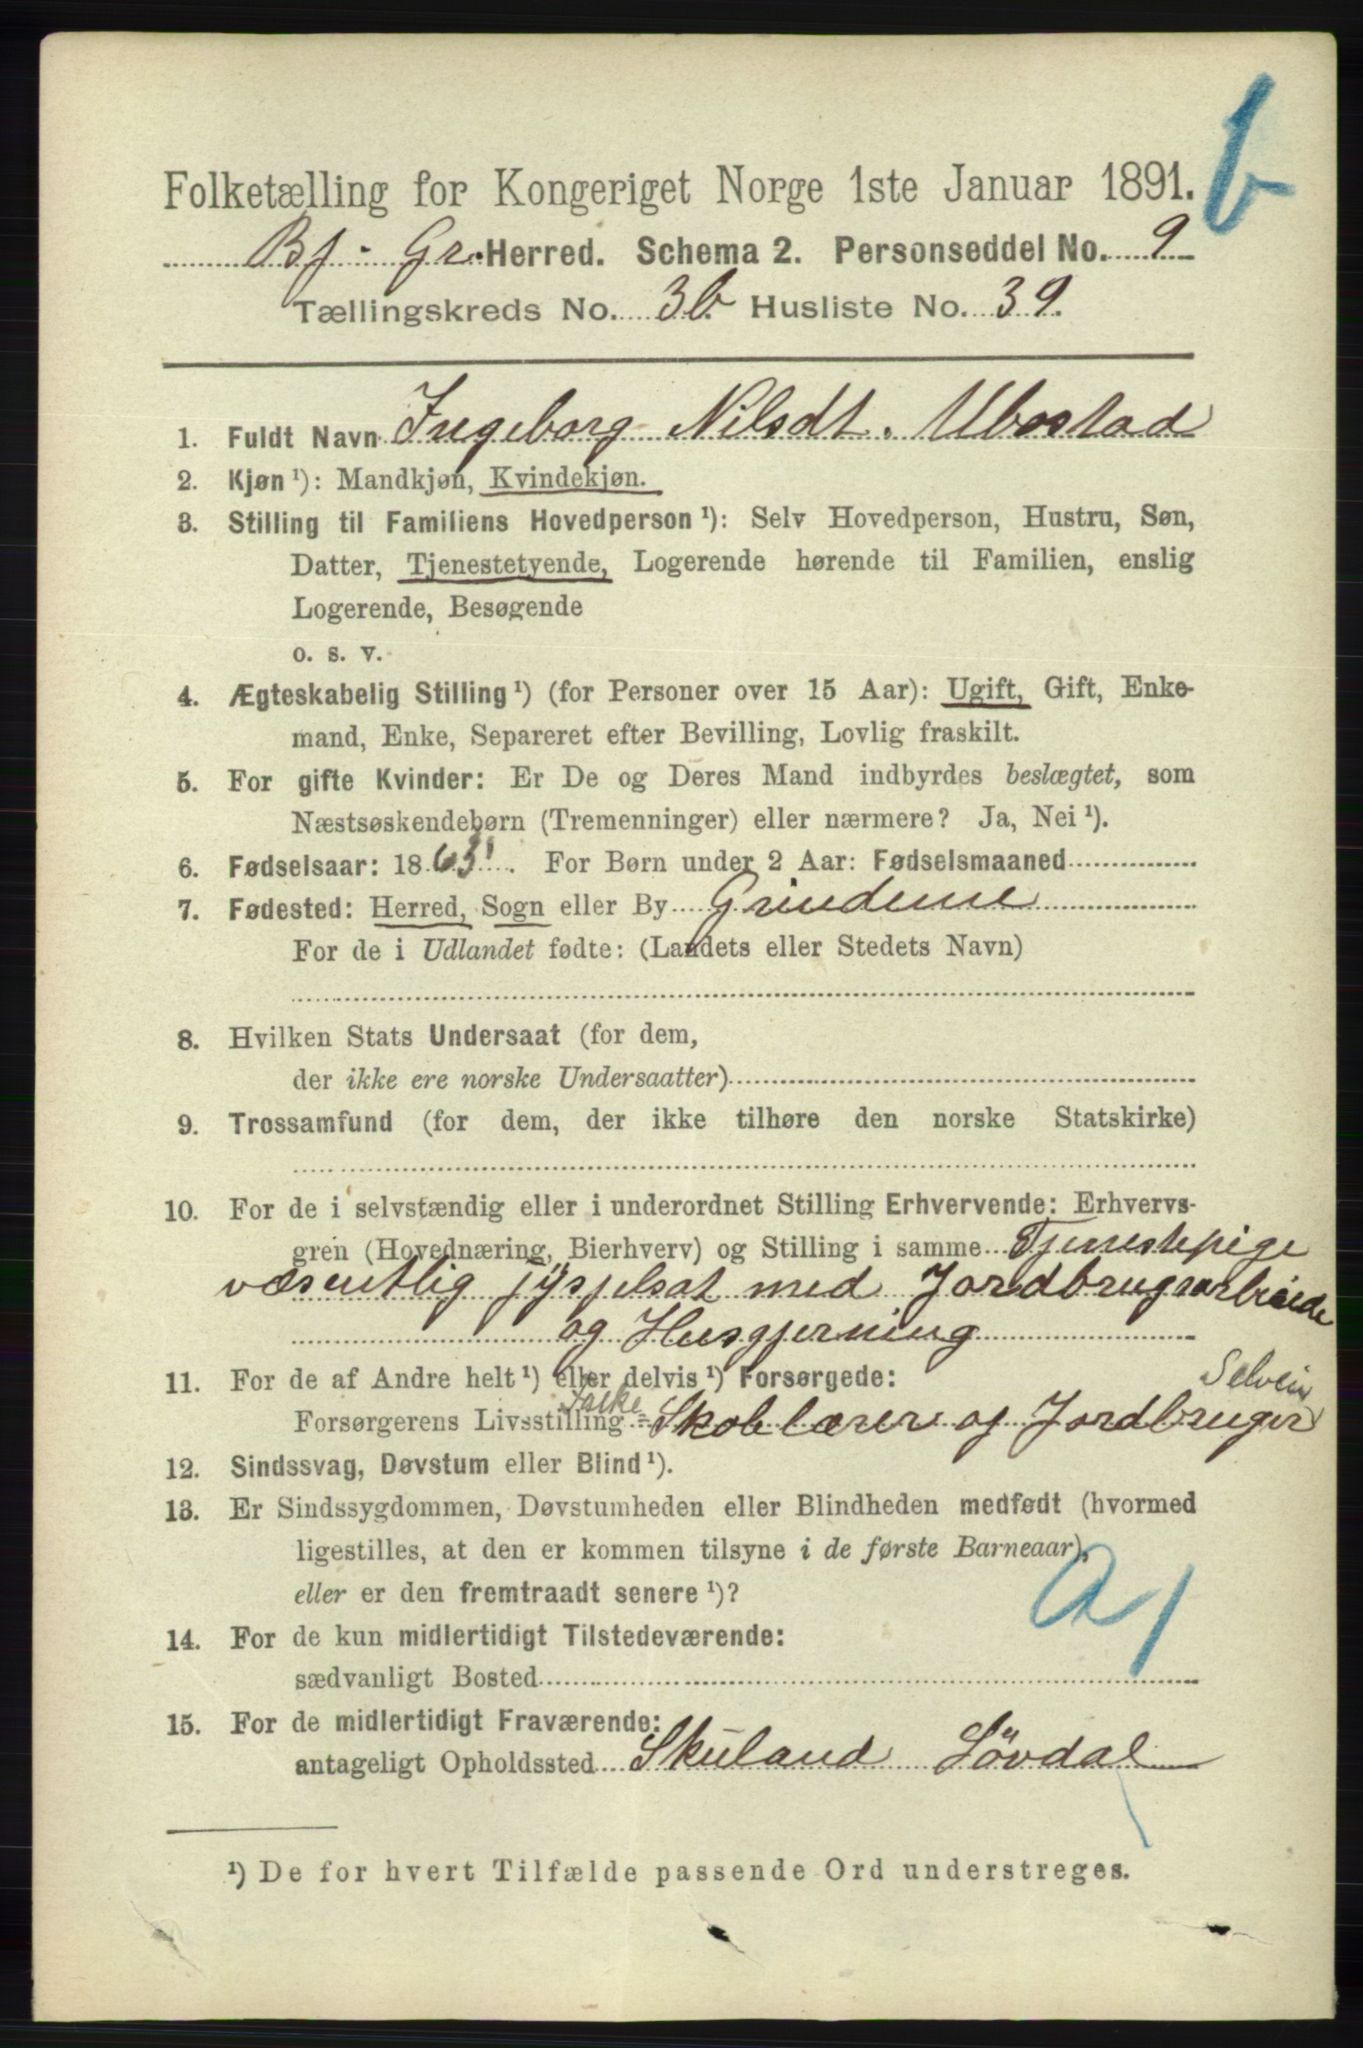 b
Folketælling for Kongeriget Norge 1ste Januar 1891.
Bj - Gr. Herred. Schema 2. Personseddel No. 9
Tællingskreds No. 3b. Husliste No. 39.
1. Fuldt Navn Ingeborg Nilsdt. Ubostad
2. Kjøn ¹): Mandkjøn, Kvindekjøn.
3. Stilling til Familiens Hovedperson ¹): Selv Hovedperson, Hustru, Søn,
Datter, Tjenestetyende, Logerende hørende til Familien, enslig
Logerende, Besøgende
o. s. v.
4. Ægteskabelig Stilling ¹) (for Personer over 15 Aar): Ugift, Gift, Enke-
mand, Enke, Separeret efter Bevilling, Lovlig fraskilt.
5. For gifte Kvinder: Er De og Deres Mand indbyrdes beslægtet, som
Næstsøskendebørn (Tremenninger) eller nærmere? Ja, Nei ¹).
6. Fødselsaar: 1863. For Børn under 2 Aar: Fødselsmaaned
7. Fødested: Herred, Sogn eller By Grindeme
For de i Udlandet fødte: (Landets eller Stedets Navn)
8. Hvilken Stats Undersaat (for dem,
der ikke ere norske Undersaatter)
9. Trossamfund (for dem, der ikke tilhøre den norske Statskirke)
10. For de i selvstændig eller i underordnet Stilling Erhvervende: Erhvervs-
gren (Hovednæring, Bierhverv) og Stilling i samme Tjenestepige
væsentlig sysselsat med Jordbrugsarbeide
og Husgjerning
11. For de af Andre helt ¹) eller delvis ¹) Forsørgede: Selveier
Forsørgerens Livsstilling Folke= Skolelærer og Jordbruger
12. Sindssvag, Døvstum eller Blind ¹).
13. Er Sindssygdommen, Døvstumheden eller Blindheden medfødt (hvormed
ligestilles, at den er kommen tilsyne i de første Barneaar),
eller er den fremtraadt senere ¹)?
a 1
14. For de kun midlertidigt Tilstedeværende:
sædvanligt Bosted
15. For de midlertidigt Fraværende:
antageligt Opholdssted Skuland Lövdal
¹) De for hvert Tilfælde passende Ord understreges.